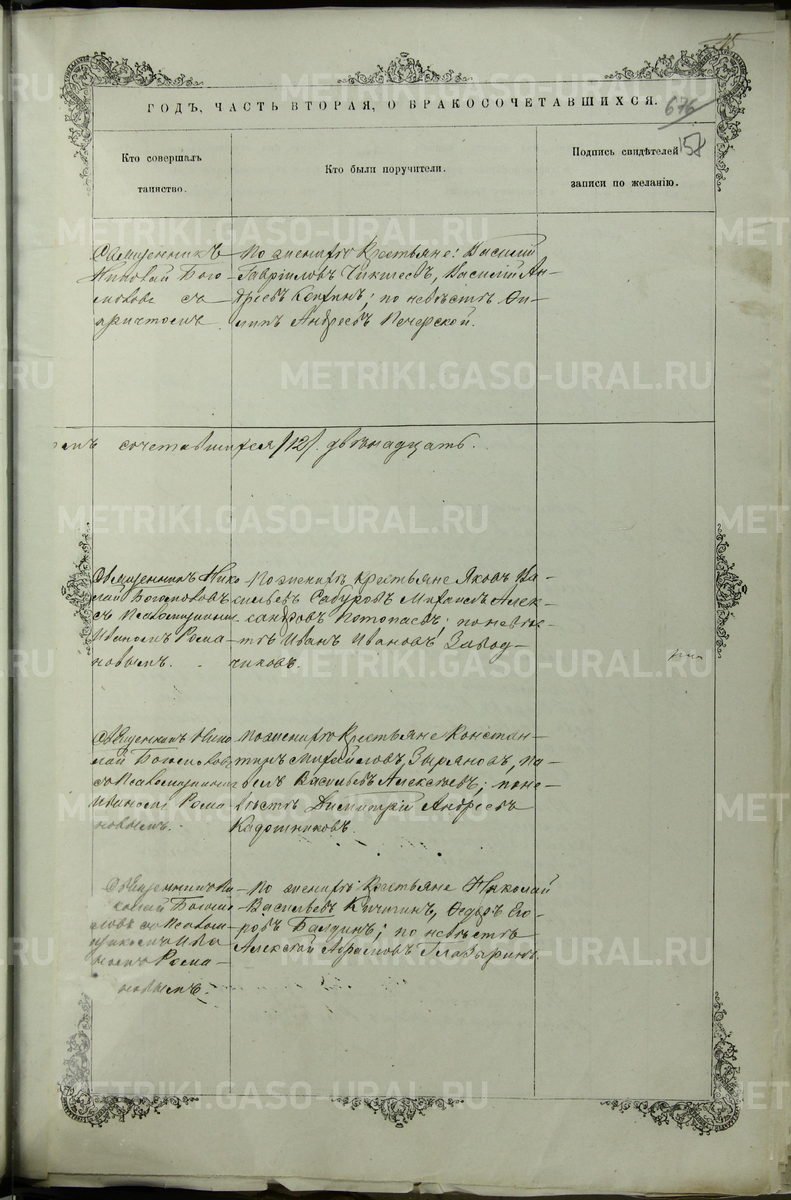 15
ГОДЪ, ЧАСТЬ ВТОРАЯ, О БРАКОСОЧЕТАВШИХСЯ.
676
158
Кто совершалъ
таинство.
Кто были поручители.
Подпись свидѣтелей
записи по желанію.
Священникъ
Николай Бого-
словъ съ
причтомъ
По женихѣ Крестьяне: Василій
Гавріиловъ Василій Ан-
дреевъ по невѣстѣ Фи-
липъ Андреевъ Печерской.
сочетавшихся /12/. двѣнадцать.
Священникъ Нико
лай Богословъ
съ Псаломщикомъ
Иваномъ Рома-
новымъ.
По женихѣ Крестьяне Яковъ Ва-
сильевъ Сабуровъ Михаилъ Алек-
сандровъ Потопаевъ; по невѣс-
тѣ Иванъ Ивановъ Завод-
чиковъ.
Священникъ Нико
лай Богословъ
съ Псаломщикомъ
Иваномъ Рома
новымъ.
По женихѣ Крестьяне Констан-
тинъ Михайловъ Зыряновъ, Па-
велъ Васильевъ Алексѣевъ; по не-
вѣстѣ Димитрій Андреевъ
Кадошниковъ.
Священникъ Ни
колай Богос
ловъ съ Псалом
щикомъ Ива
номъ Рома
новымъ.
По женихѣ Крестьяне Николай
Васильевъ Кичигинъ, Ѳедоръ Его-
ровъ Балдинъ; по невѣстѣ
Алексѣй Абрамовъ Глазыринъ.
METRIKI.GASO-URAL.RU